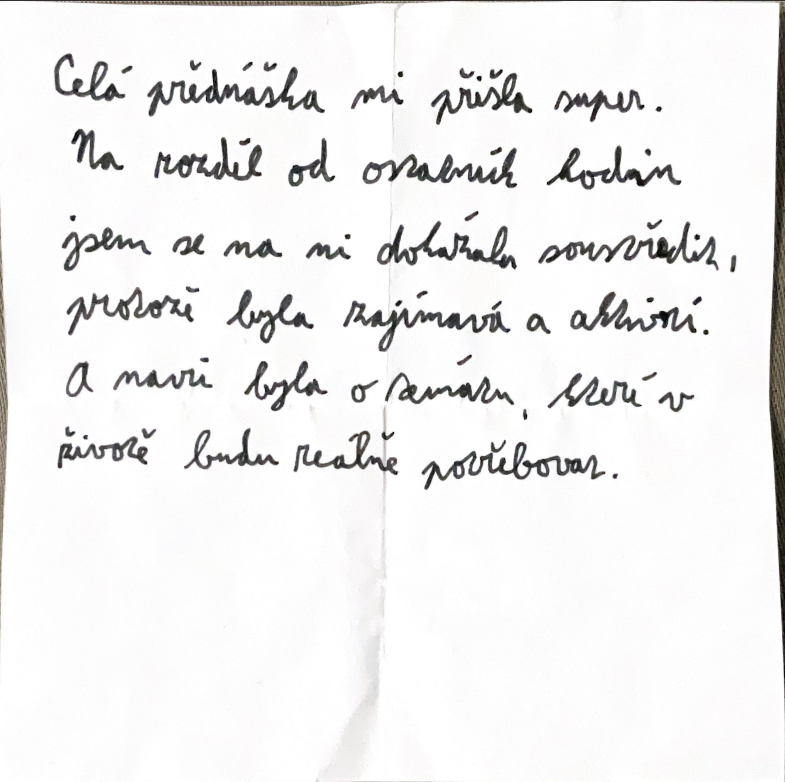 Celá přednáška mi přišla super.
Na rozdíl od ostatních hodin
jsem se na ni dokázala soustředit,
protože byla zajímavá a aktivní.
A navíc byla o tématu, které v
životě budu reálně potřebovat.